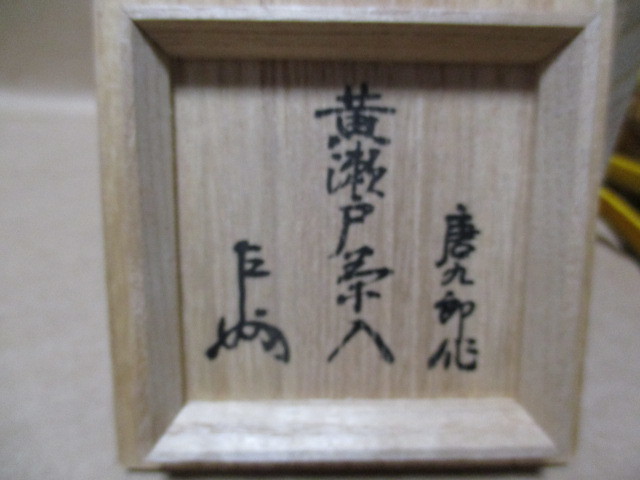 唐九郎作
黄瀬戸茶入